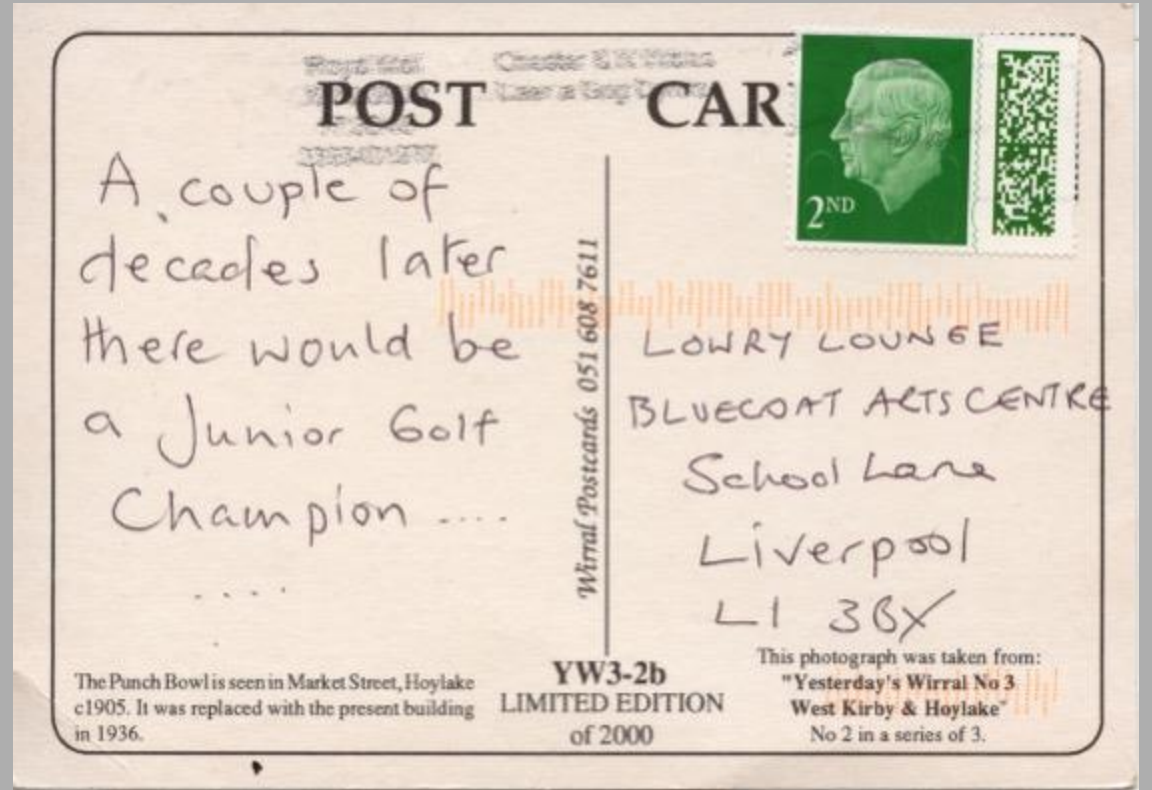 POST CAR
2ND
A couple of
decades later
there would be
a Junior Golf
Champion ....
....
Wirral Postcards 051 608 7611
LOWRY LOUNGE
BLUECOAT ARTS CENTRE
School Lane
Liverpool
L1 3BX
The Punch Bowl is seen in Market Street, Hoylake
c1905. It was replaced with the present building
in 1936.
YW3-2b
LIMITED EDITION
of 2000
This photograph was taken from:
"Yesterday's Wirral No 3
West Kirby & Hoylake"
No 2 in a series of 3.